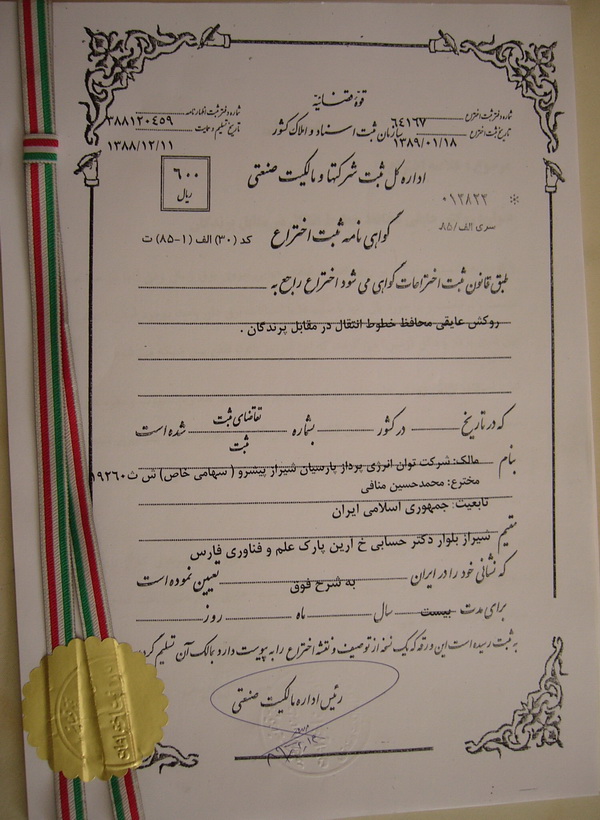 قوه قضائیه
سازمان ثبت اسناد و املاک کشور
شماره و دفتر ثبت اختراع ۶۴۱۶۷
تاریخ ثبت اختراع ۱۳۸۹/۰۱/۱۸
شماره و دفتر ثبت اظهارنامه ۳۸۸۱۲۰۴۵۹
تاریخ تسلیم و ۱۳۸۸/۱۲/۱۱
اداره کل ثبت شرکتها و مالکیت صنعتی
۶۰۰
ریال
۰۱۲۸۲۲
سری الف/۸۵
گواهی نامه ثبت اختراع
کد (۳۰) الف (۱-۸۵) ت
طبق قانون ثبت اختراعات گواهی می شود اختراع راجع به
روکش عایقی محافظ خطوط انتقال در مقابل پرندگان .
که در تاریخ در کشور بشماره تقاضای ثبت ثبت شده است
بنام مالک: شرکت توان انرژی پرداز پارسیان شیراز پیشرو ( سهامی خاص) ش ث ۱۹۲۶۰
مخترع: محمدحسین منافی
تابعیت: جمهوری اسلامی ایران
مقیم شیراز بلوار دکتر حسابی خ آرین پارک علم و فناوری فارس
که نشانی خود را در ایران به شرح فوق تعیین نموده است
برای مدت بیست سال ماه روز
به ثبت رسیده است این ورقه که یک نسخه از توصیف و نقشه اختراع را به پیوست دارد بمالک آن تسلیم گر
رئیس اداره مالکیت صنعتی